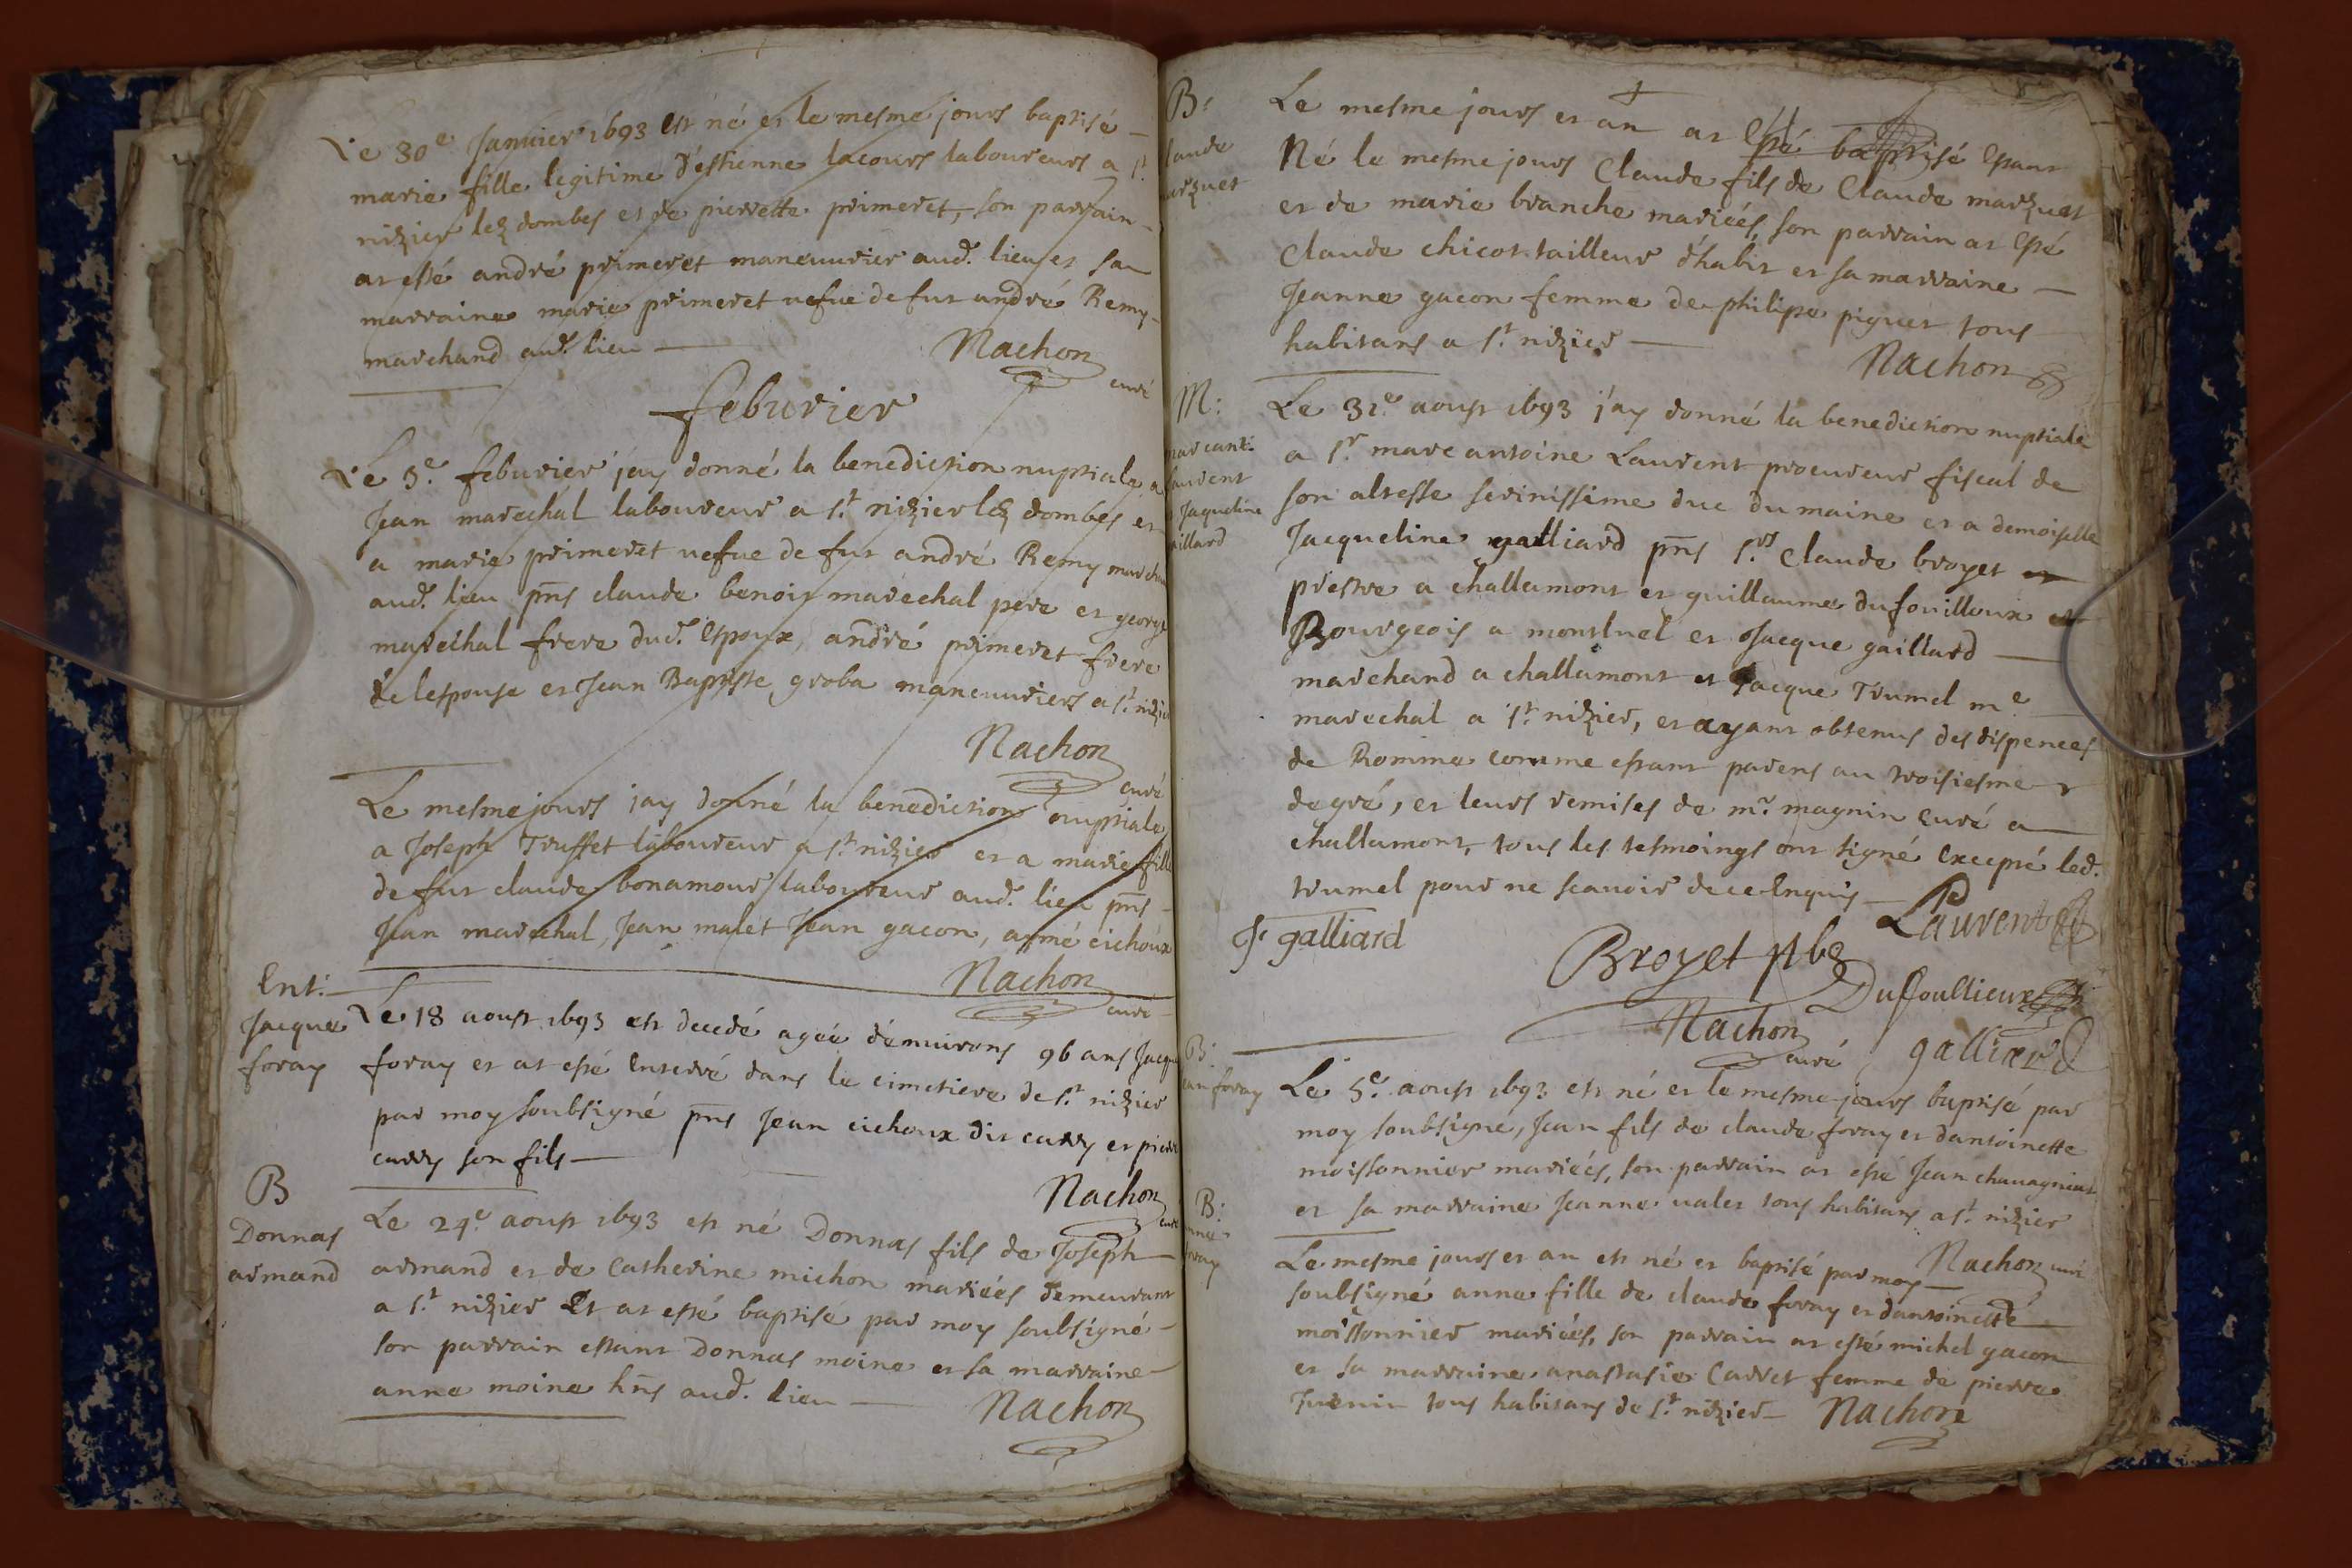 Le 30e Janvier 1693 est né et le mesme jours baptisé
marie fille legitime d'estienne lacours laboureurs a st
nizier lez dombes et de pierrette primeret, son parrain
at esté andré primeret maneuurier aud. lieu et sa
marraine marie primeret uefue de fut andré Remy
marchand aud. lieu
Nachon
curé
feburier
Le 3e. feburier jay donné la benediction nuptiale a
Jean marechal laboureur a st. nizier lez dombes et
a marie primeret uefue de fut andré Remy marchand
aud. lieu pnts claude benoit maréchal pere et george
marechal frere dud. espoux, andré primeret frere
de lespouse et Jean Baptiste groba maneuuriers a st. nizier
Nachon
curé
Le mesme jours jay donné la benediction nuptiale
a Joseph Truffet laboureur a st. nizier et a marie fille
de fut claude bonamour laboureur aud. lieu pnts
Jean marechal, Jean malet Jean gacon, aimé cichoux
Nachon
curé
Ent:
Jacque
foray
Le 18 aoust 1693 est decedé agée d'enuirons 96 ans Jacque
foray et at esté Enterré dans le cimetiere de st. nizier
par moy soubsigné pnts Jean cichoux dit curry et pierre
curry son fils
Nachon
curé
B
Donnas
armand
Le 24e. aoust 1693 est né Donnas fils de Joseph
armand et de Catherine michon mariées demeurant
a st. nizier Et at esté baptisé par moy soubsigné
son parrain estant Donnas moine et sa marraine
anne moine hnts aud. lieu
Nachon
B:
laude
Le mesme jours et an at esté baptisé estant
Né le mesme jours Claude fils de Claude marquet
et de marie branche mariées, son parrain at esté
Claude chicot tailleur d'habit et sa marraine
Jeanne gacon femme de philipe piquet tous
habitans a st. nizier
Nachon
M:
laurent
Jaqueline
aillard
Le 31e. aoust 1693 j'ay donné la benediction nuptiale
a sr. marc antoine Laurent procureur fiscal de
son altesse serinissime duc du maine et a demoiselle
Jacqueline galliard pnts srs Claude broyet et
prestre a challamont et guillaume dufouilloux et
Bourgeois a montluel et Jacque gaillard
marchand a challamont et Jacque Trumel me
marechal a st. nizier, et ayant obtenus des dispences
de Romme comme estant parens au troisiesme
degré, et leurs remises de mr. magnin curé a
challamont, tous les tesmoings ont signé Excepté led.
trumel pour ne scauoir de ce Enquis
J. galliard
Laurent
Broyet pbr
Dufoullieux
Nachon
curé
galliard
B:
an foray
Le 5e. aoust 1693 est né et le mesme jours baptisé par
moy soubsigné, Jean fils de claude foray et dantoinette
moissonnier mariées, son parrain at esté Jean chauagnieux
et sa marraine Jeanne ualet tous habitans a st. nizier
Nachon curé
B:
nne
foray
Le mesme jours et an est né et baptisé par moy
soubsigné anne fille de claude foray et dantoinette
moissonnier mariées, son parrain at esté michel gacon
et sa marraine anastasie Carret femme de pierre
Juenin tous habitans de st. nizier
Nachon